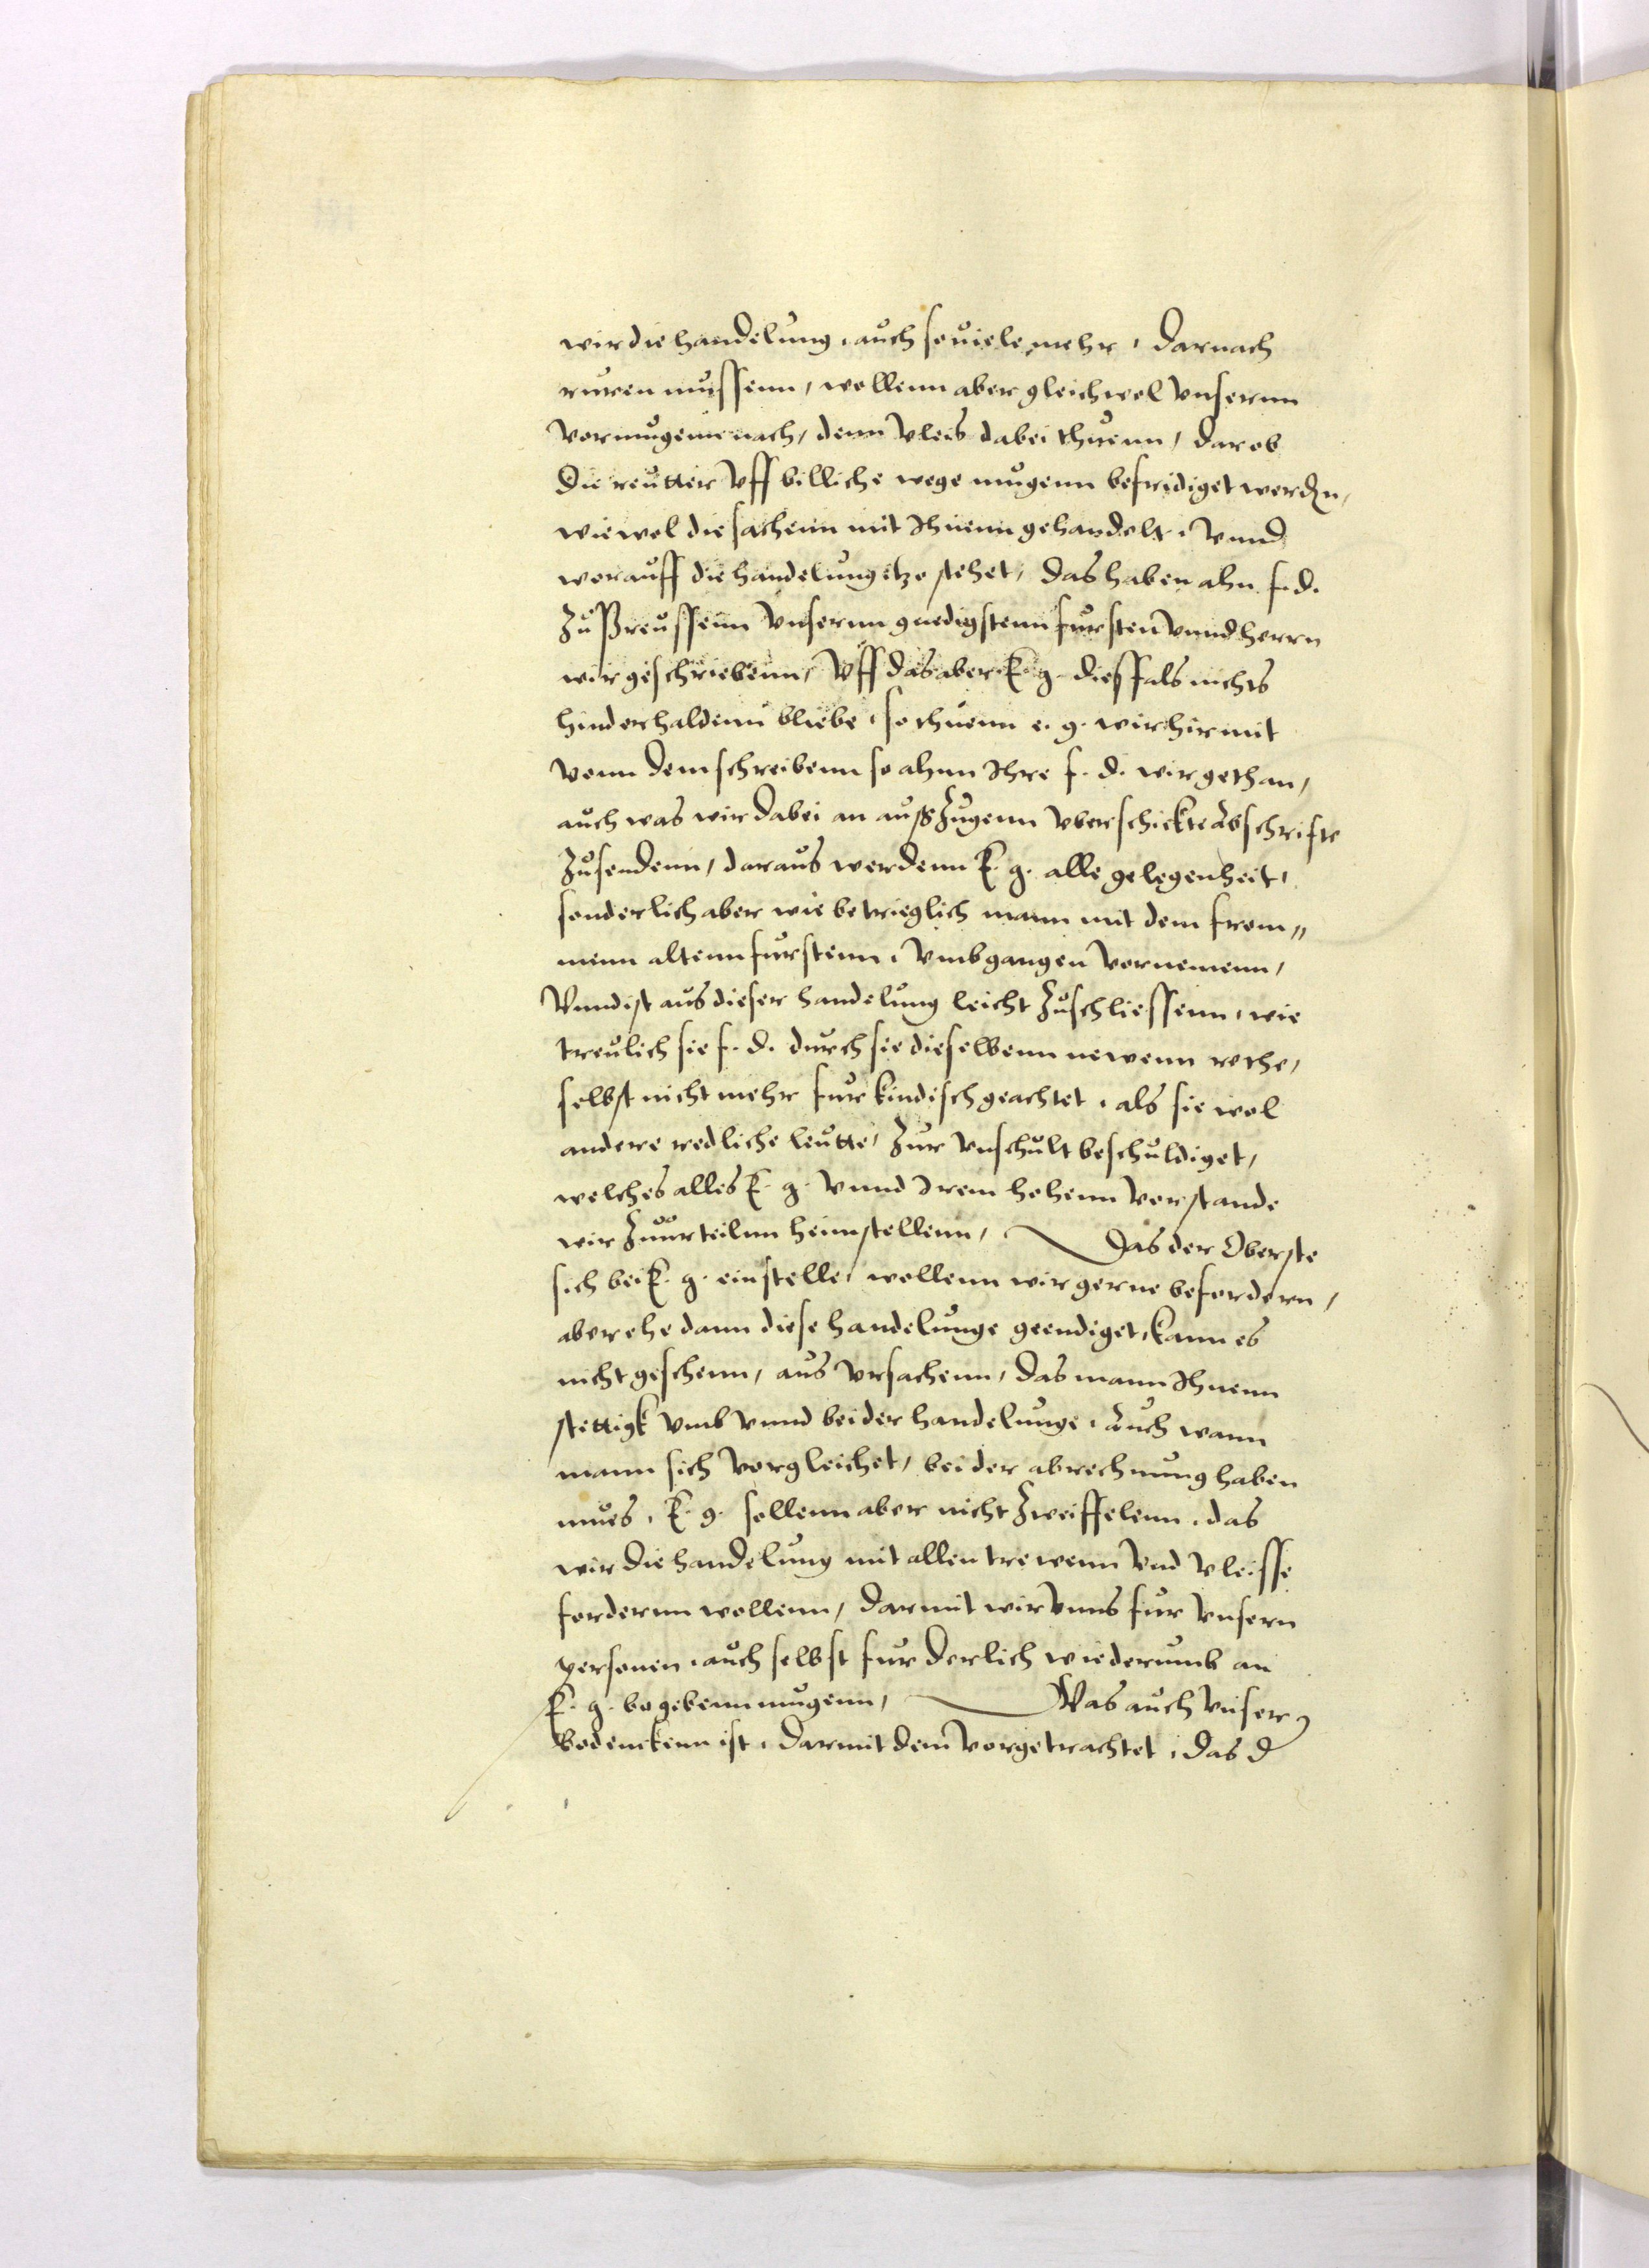 wir die handelung, auch souiele mehr, darnach
ruren mussenn, wollenn aber gleichwol vnserm
vormugene nach, denn vleis dabei thuenn, dar ob
die reutter vff billiche wege mugenn befridiget werden,
wiewol die sachenn mit Ihnenn gehandelt, vnnd
worauff die handelung itzo stehet, das haben ahn f. d.
zu Preussenn vnserm gnedigstenn fursten vnnd herrn
wir geschriebenn, vff das aber E. g. diesfals nichts
hinderhaldenn bliebe, so thuenn e. g. wir hirmit
vonn dem schreibenn so ahnn Ihre f. d. wir gethan,
auch was wir dabei an außzugenn vberschickt Abschrifte
zusendenn, daraus werdenn E. g. alle gelegenheit,
sonderlich aber wie betrieglich mann mit dem from„
menn altenn furstenn, vmbgangen vornemenn,
Vnnd ist aus dieser handelung leicht zuschliessenn, wie
treulich sie f. d. durch sie dieselbenn newenn rethe,
selbst nicht mehr fur kindisch geachtet, als sie wol
andere redliche leutte, zur vnschult beschuldiget,
welches alles E. g. vnnd Irem hohenn vorstande
wir zuurteilnn heimstellenn, Das der Oberste
sich bei E. g. einstelle, wollenn wir gerne befordern,
aber ehe dann diese handelunge geendiget, kann es
nicht geschenn, aus vrsachenn, das mann Ihnenn
stettigk vmb vnnd bei der handelunge, Auch wann
mann sich vorgleichet, bei der abrechnung haben
mues, E. g. sollenn aber nicht zweiffelenn, das
wir die handelung mit allen trewenn vnd vleisse
fordernn wollenn, darmit wir vnns fur vnsern
personen, auch selbst furderlich wiederumb an
E. g. begebenn mugenn, Was auch vnser
bedenckenn ist, darmit dem vorgetrachtet, das d